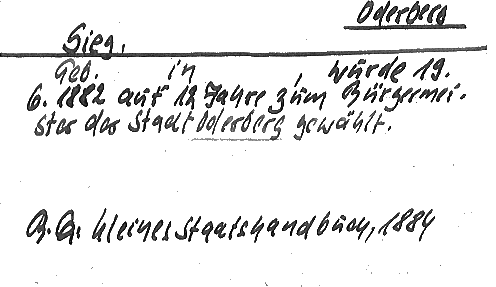 Oderberg
Sieg.
Geb. in , wurde 19.
6. 1882 auf 12 Jahre zum Bürgermei-
ster der Stadt Oderberg gewählt.
kleines Staatshandbuch, 1884